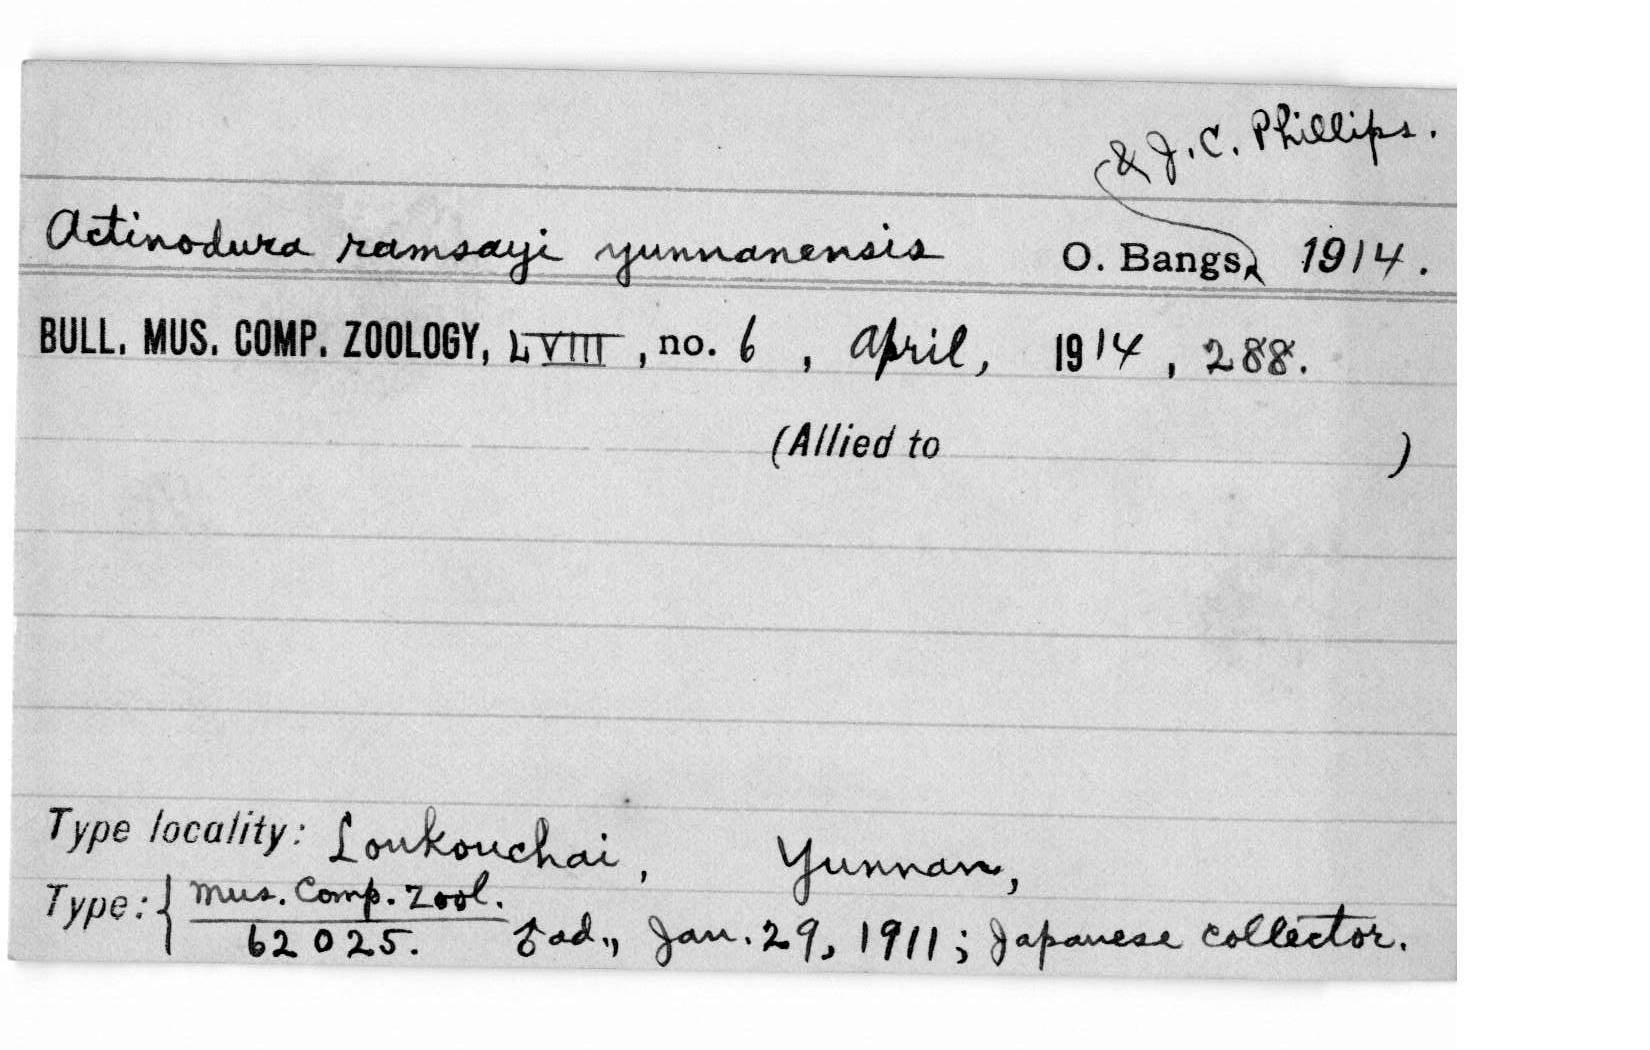 & J. C. Phillips.
Actinodura ramsayi yunnanensis O. Bangs, 1914.
BULL. MUS. COMP. ZOOLOGY, LVIII, no. 6, April, 1914, 288.
(Allied to )
Type locality: Loukouchai, Yunnan,
Type: { Mus. Comp. Zool.
62025. ♂ ad., Jan. 29, 1911; Japanese collector.